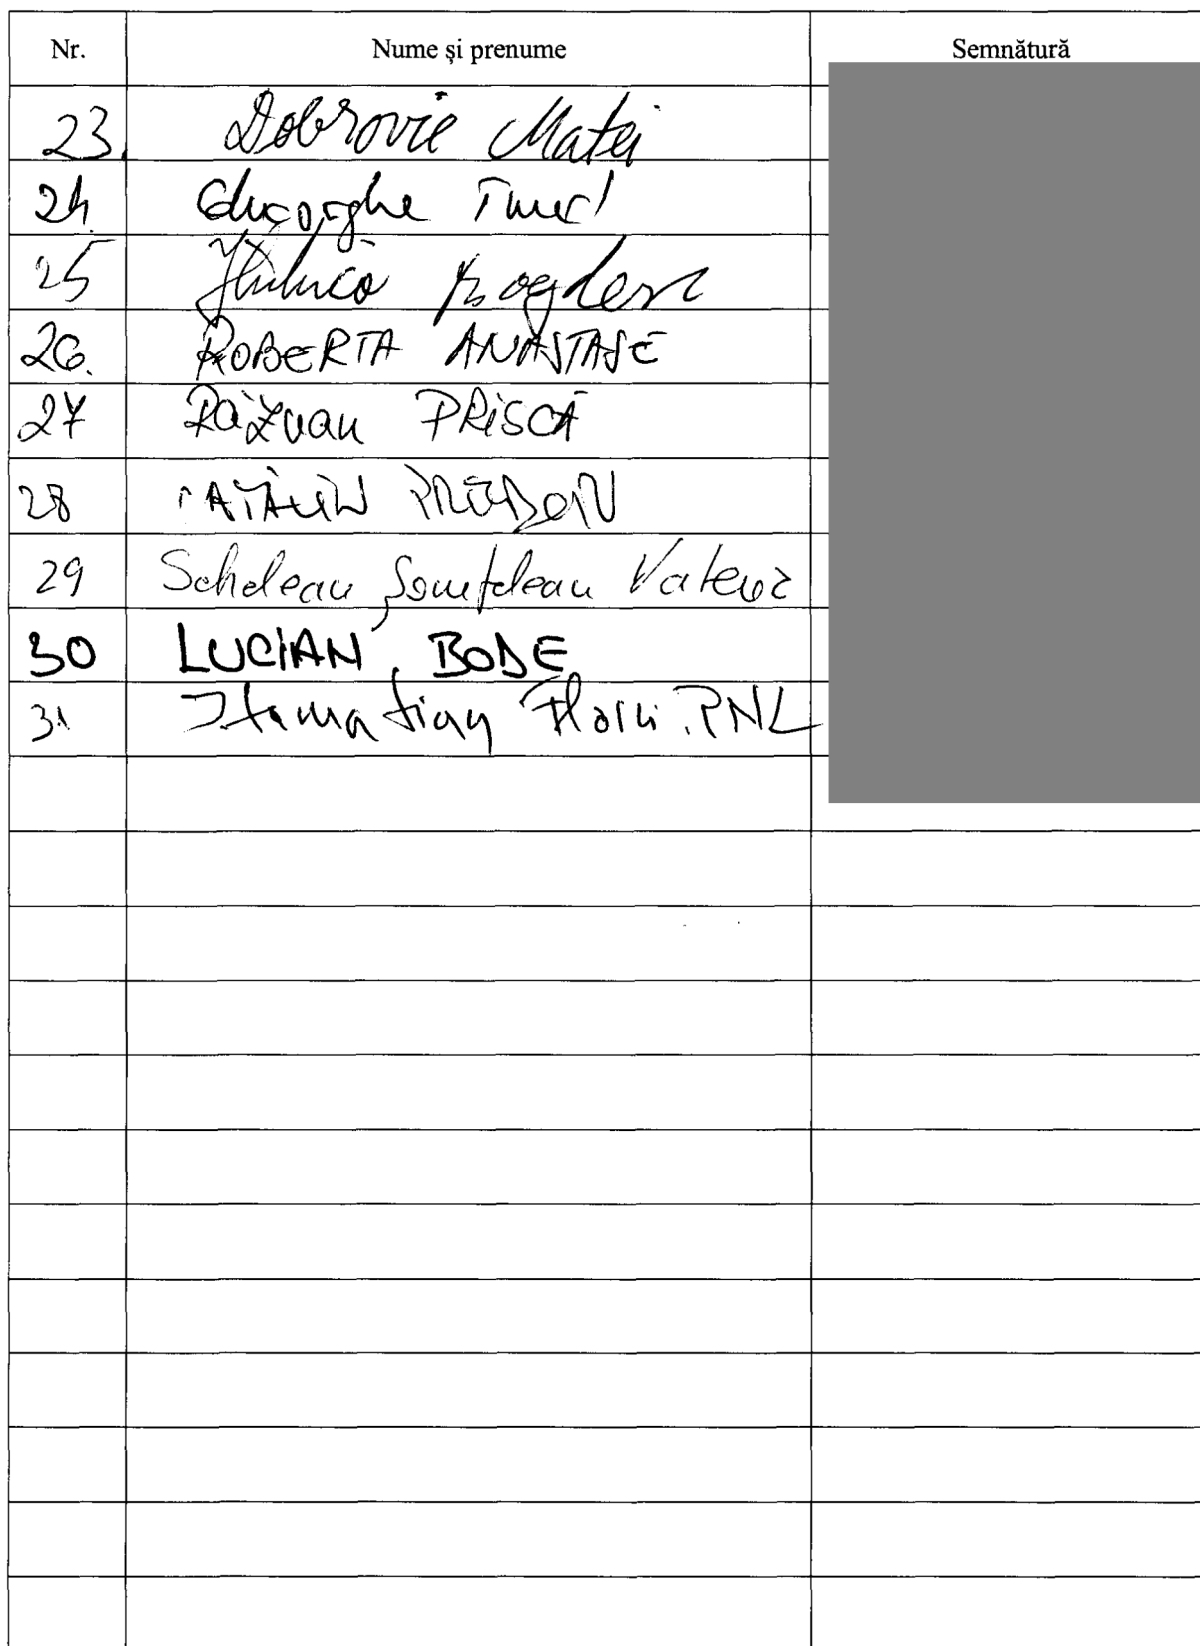 Nr. Nume și prenume Semnătură
23. Dobrovie Matei
24. Gheorghe Tinel
25 Huțucă Bogdan
26. ROBERTA ANASTASE
27 Răzvan PRISCĂ
28 CĂTĂLIN PREDOIU
29 Schelean Șomfelean Valeria
30 LUCIAN BODE
31 Stamatian Florin PNL